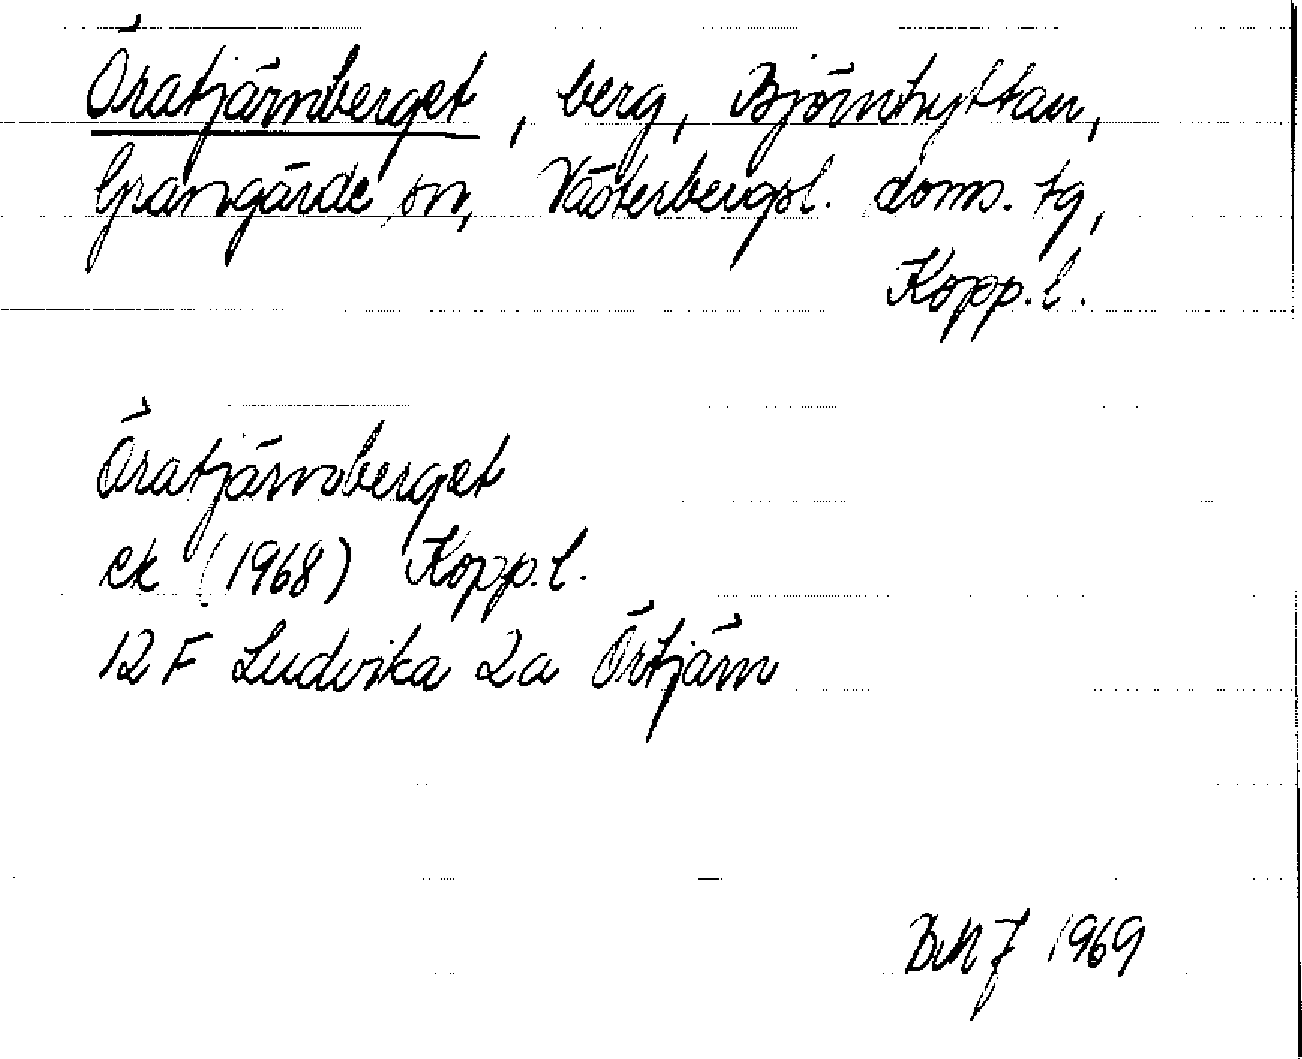 Öratjärnberget, berg, Björnhyttan,
Grangärde sn, Västerbergsl. doms. tg,
Kopp.l.
Öratjärnsberget
ek (1968) Kopp.l.
12 F Ludvika 2a Örtjärn
1969